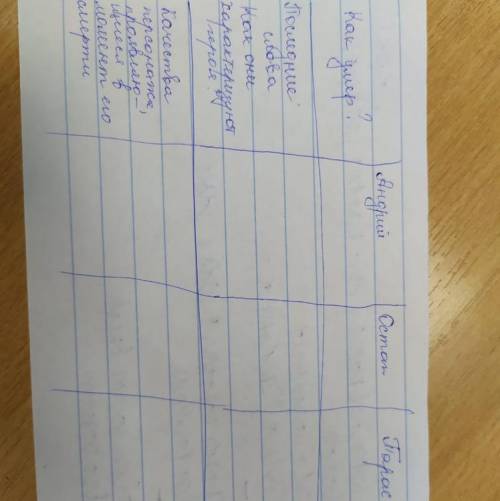 Андрий
Остап
Тарас
Как умер?
Последние
слова
Как они
характеризуют
героя
Качества
персонажа,
проявляю-
щиеся в
момент его
смерти